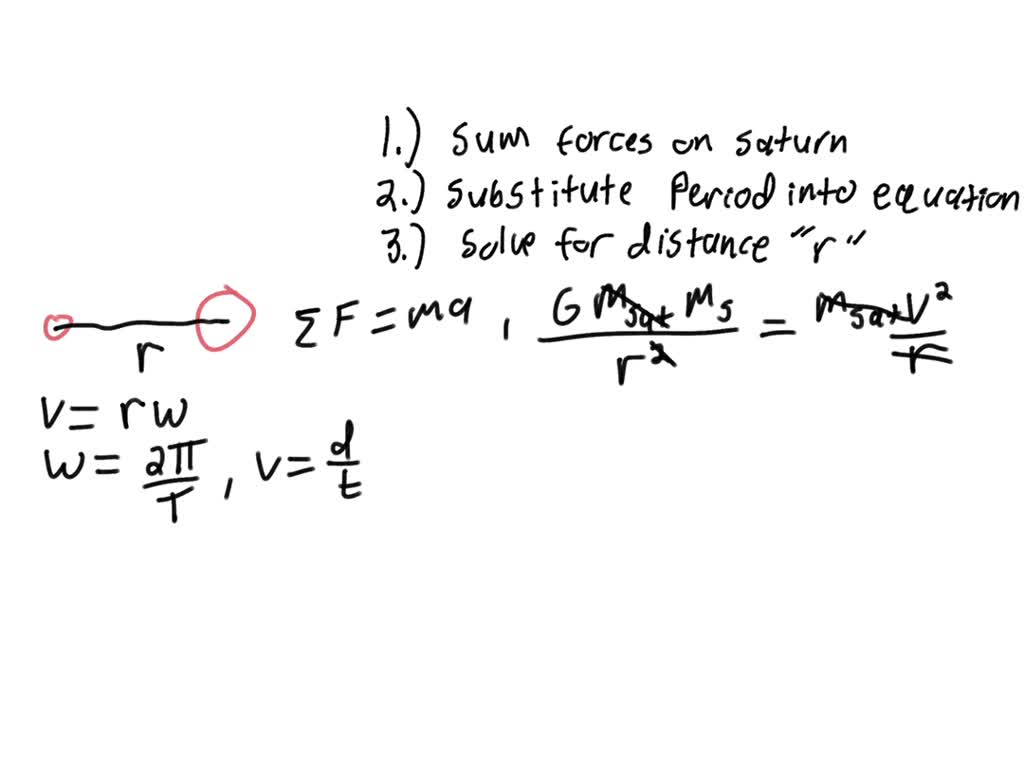 1.) Sum forces on saturn
2.) Substitute Period into equation
3.) Solve for distance "r"
r
ΣF = ma , G m_sat M_s / r^2 = m_sat v^2 / r
v = rw
w = 2π / T , v = d / t